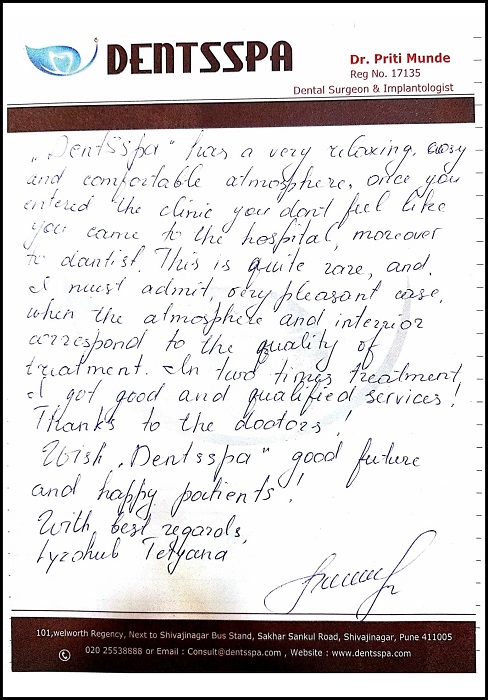 DENTSSPA
Dr. Priti Munde
Reg No. 17135
Dental Surgeon & Implantologist
„DentSSpa“ has a very relaxing, cosy
and comfortable atmosphere, once you
entered the clinic you don't feel like
you came to the hospital, moreover
to dantist. This is quite rare, and,
I must admit, very pleasant case,
when the atmosphere and interior
correspond to the quality of
treatment. In two times treatment,
I got good and qualified services!
Thanks to the doctors!
Wish „Dentsspa“ good future
and happy patients!
With best regards,
Lyzohub Tetyana
101,welworth Regency, Next to Shivajinagar Bus Stand, Sakhar Sankul Road, Shivajinagar, Pune 411005
020 25538888 or Email : Consult@dentsspa.com , Website : www.dentsspa.com